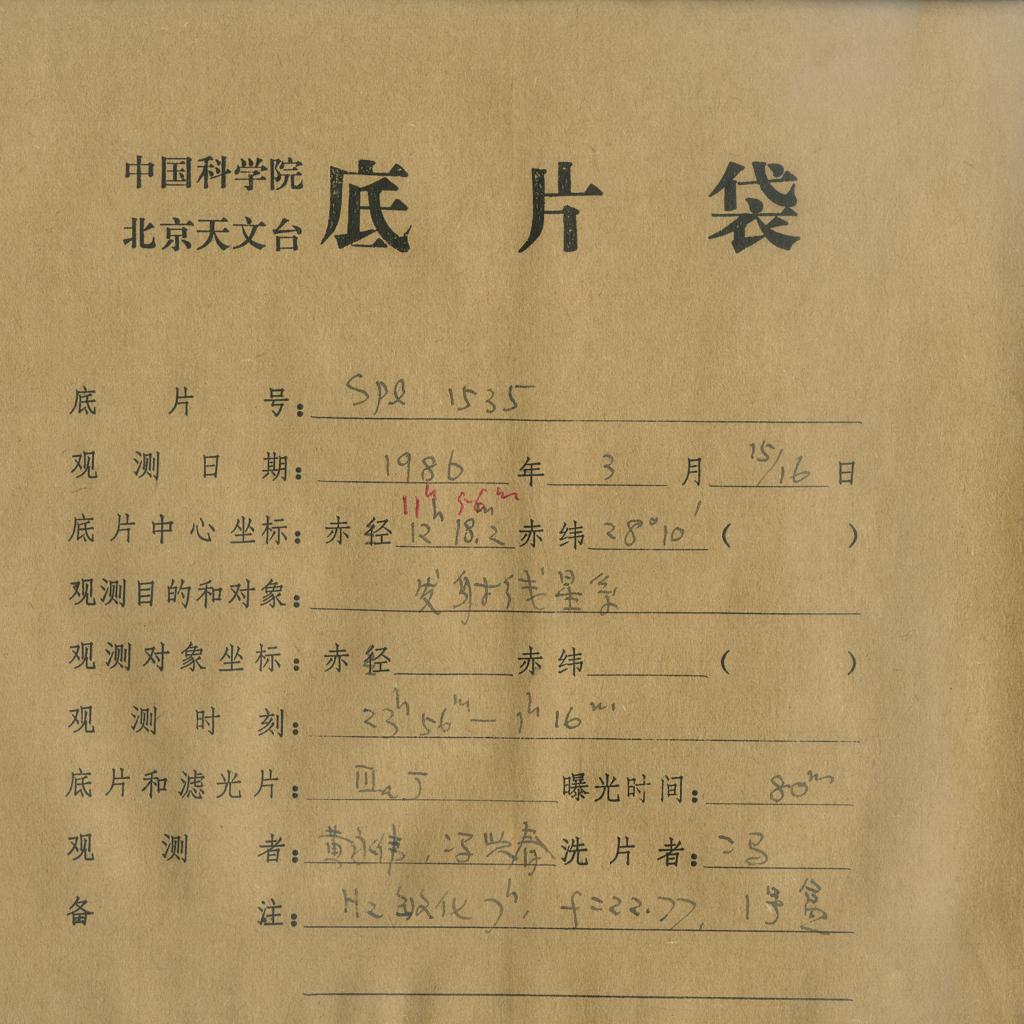 中国科学院
北京天文台
底片袋
底片号： Spl 1535
观测日期： 1986 年 3 月 15/16 日
11h 56m
底片中心坐标：赤径 12h 18.2m 赤纬 28°10′ (   )
观测目的和对象： 发射线星系
观测对象坐标：赤径 赤纬 (   )
观测时刻： 23h 56m — 1h 16m
底片和滤光片： Ⅲa J 曝光时间： 80m
观测者： 黄永伟，冯兴春 洗片者： 冯
备注： H2 敏化 7h, f=22.77, 1号盒